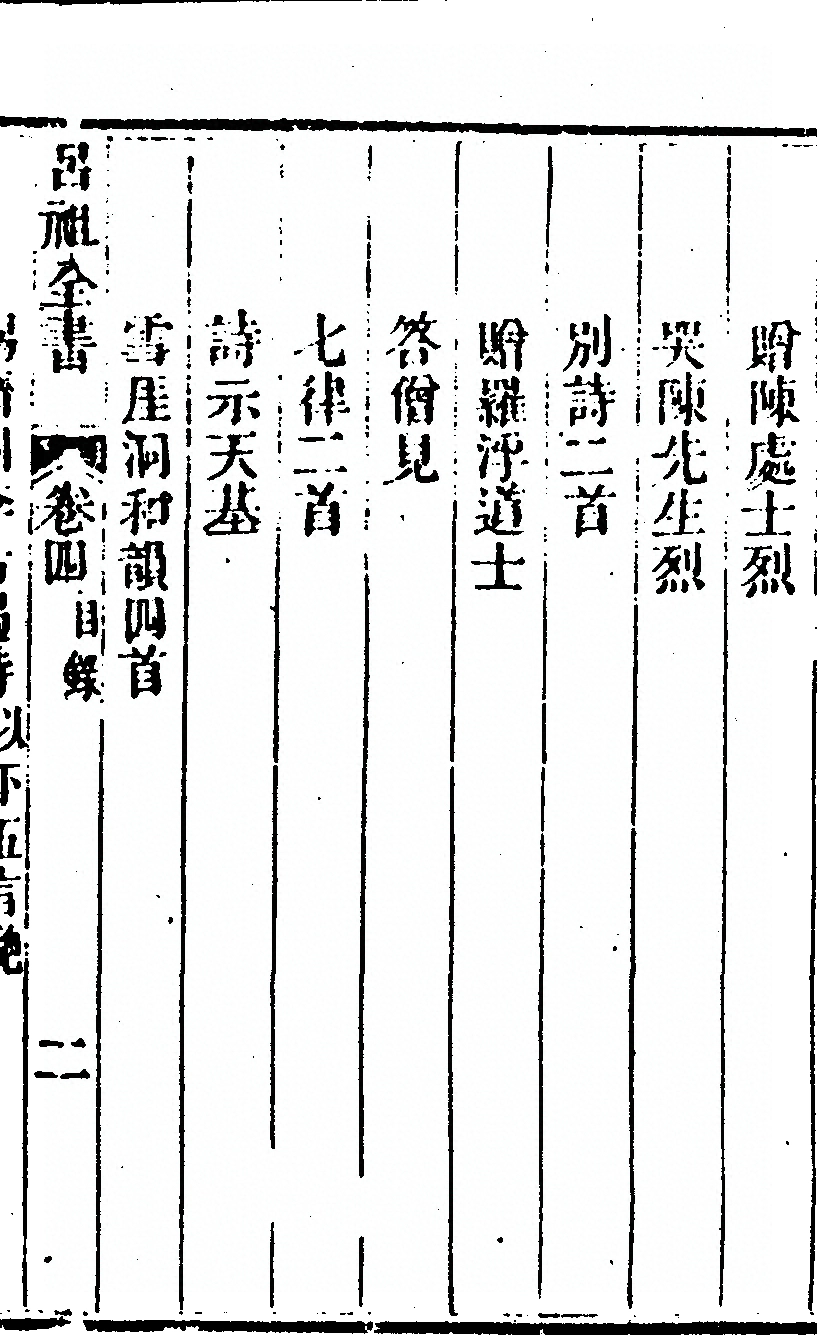 贈陳處士烈
哭陳先生烈
別詩二首
贈羅浮道士
答僧見
七律二首
詩示天基
雪厓洞和韻四首
呂祖全書 卷四 目錄 二